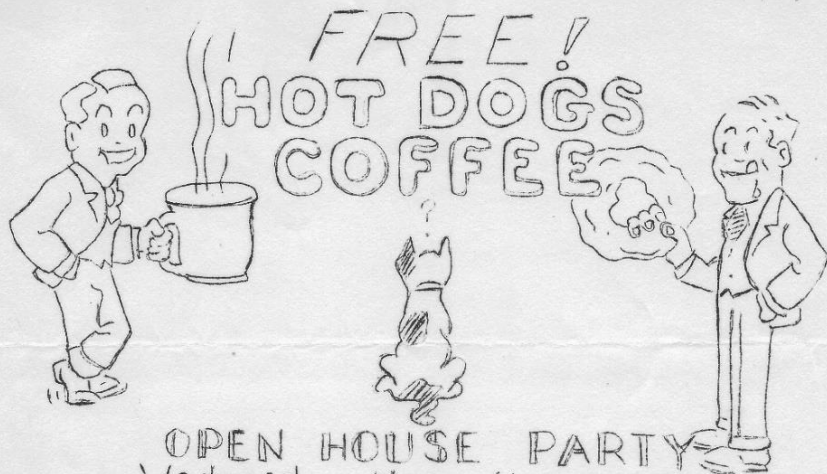 FREE!
HOT DOGS
COFFEE
?
OPEN HOUSE PARTY